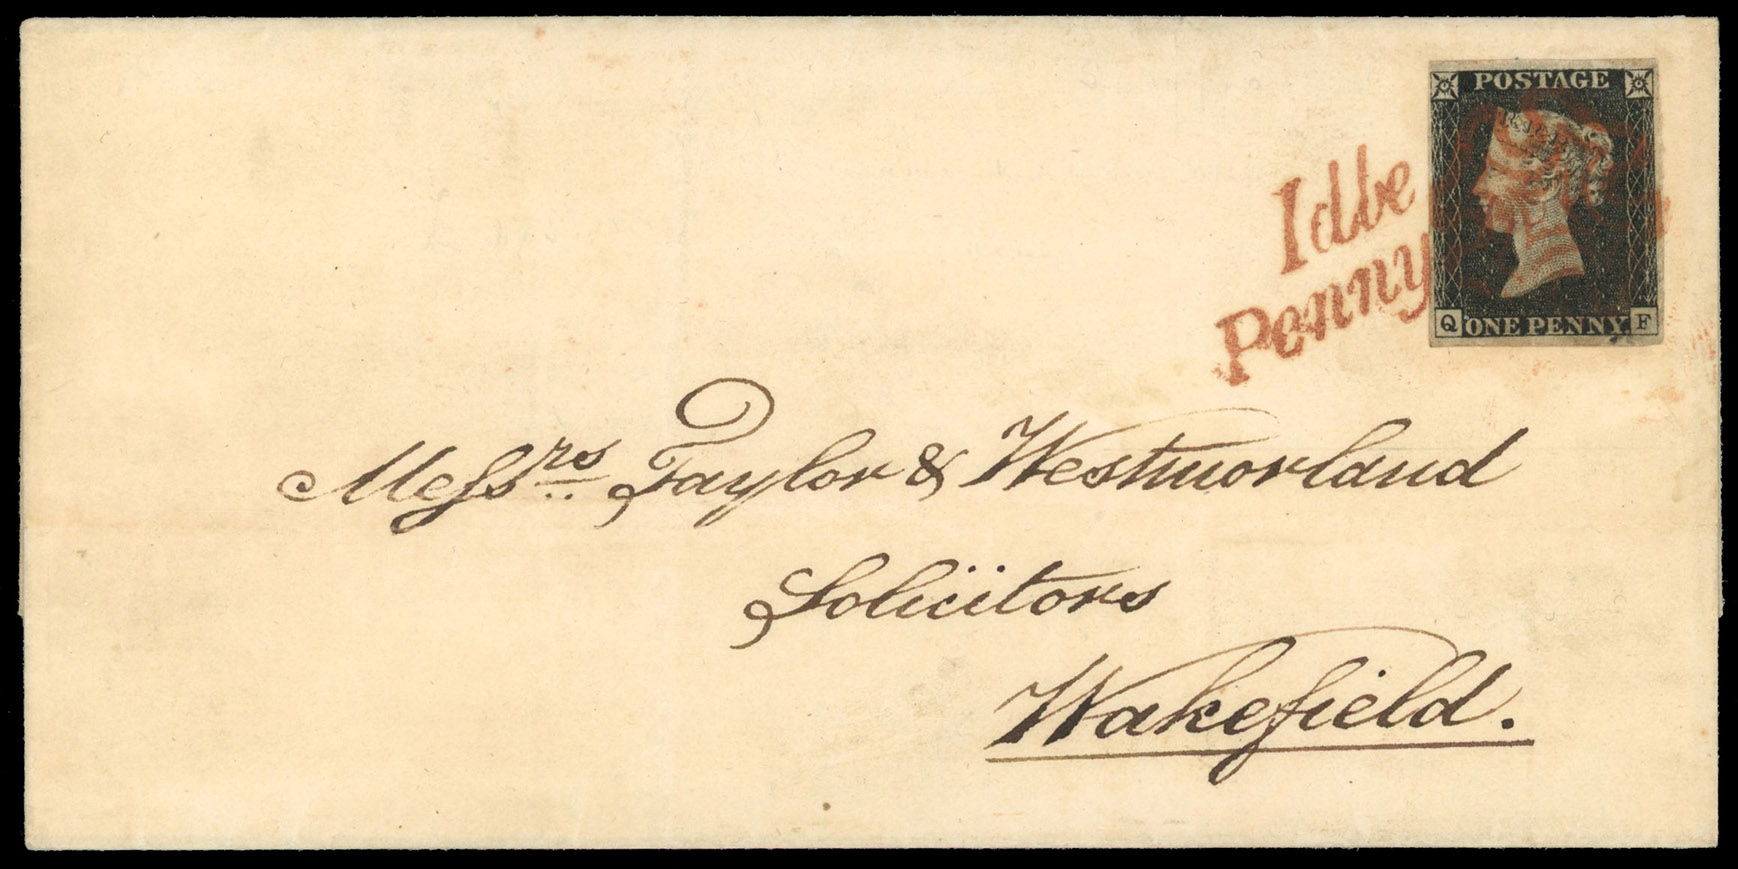 POSTAGE
Idle
Penny
Q ONE PENNY F
Messrs Taylor & Westmorland
Solicitors
Wakefield.